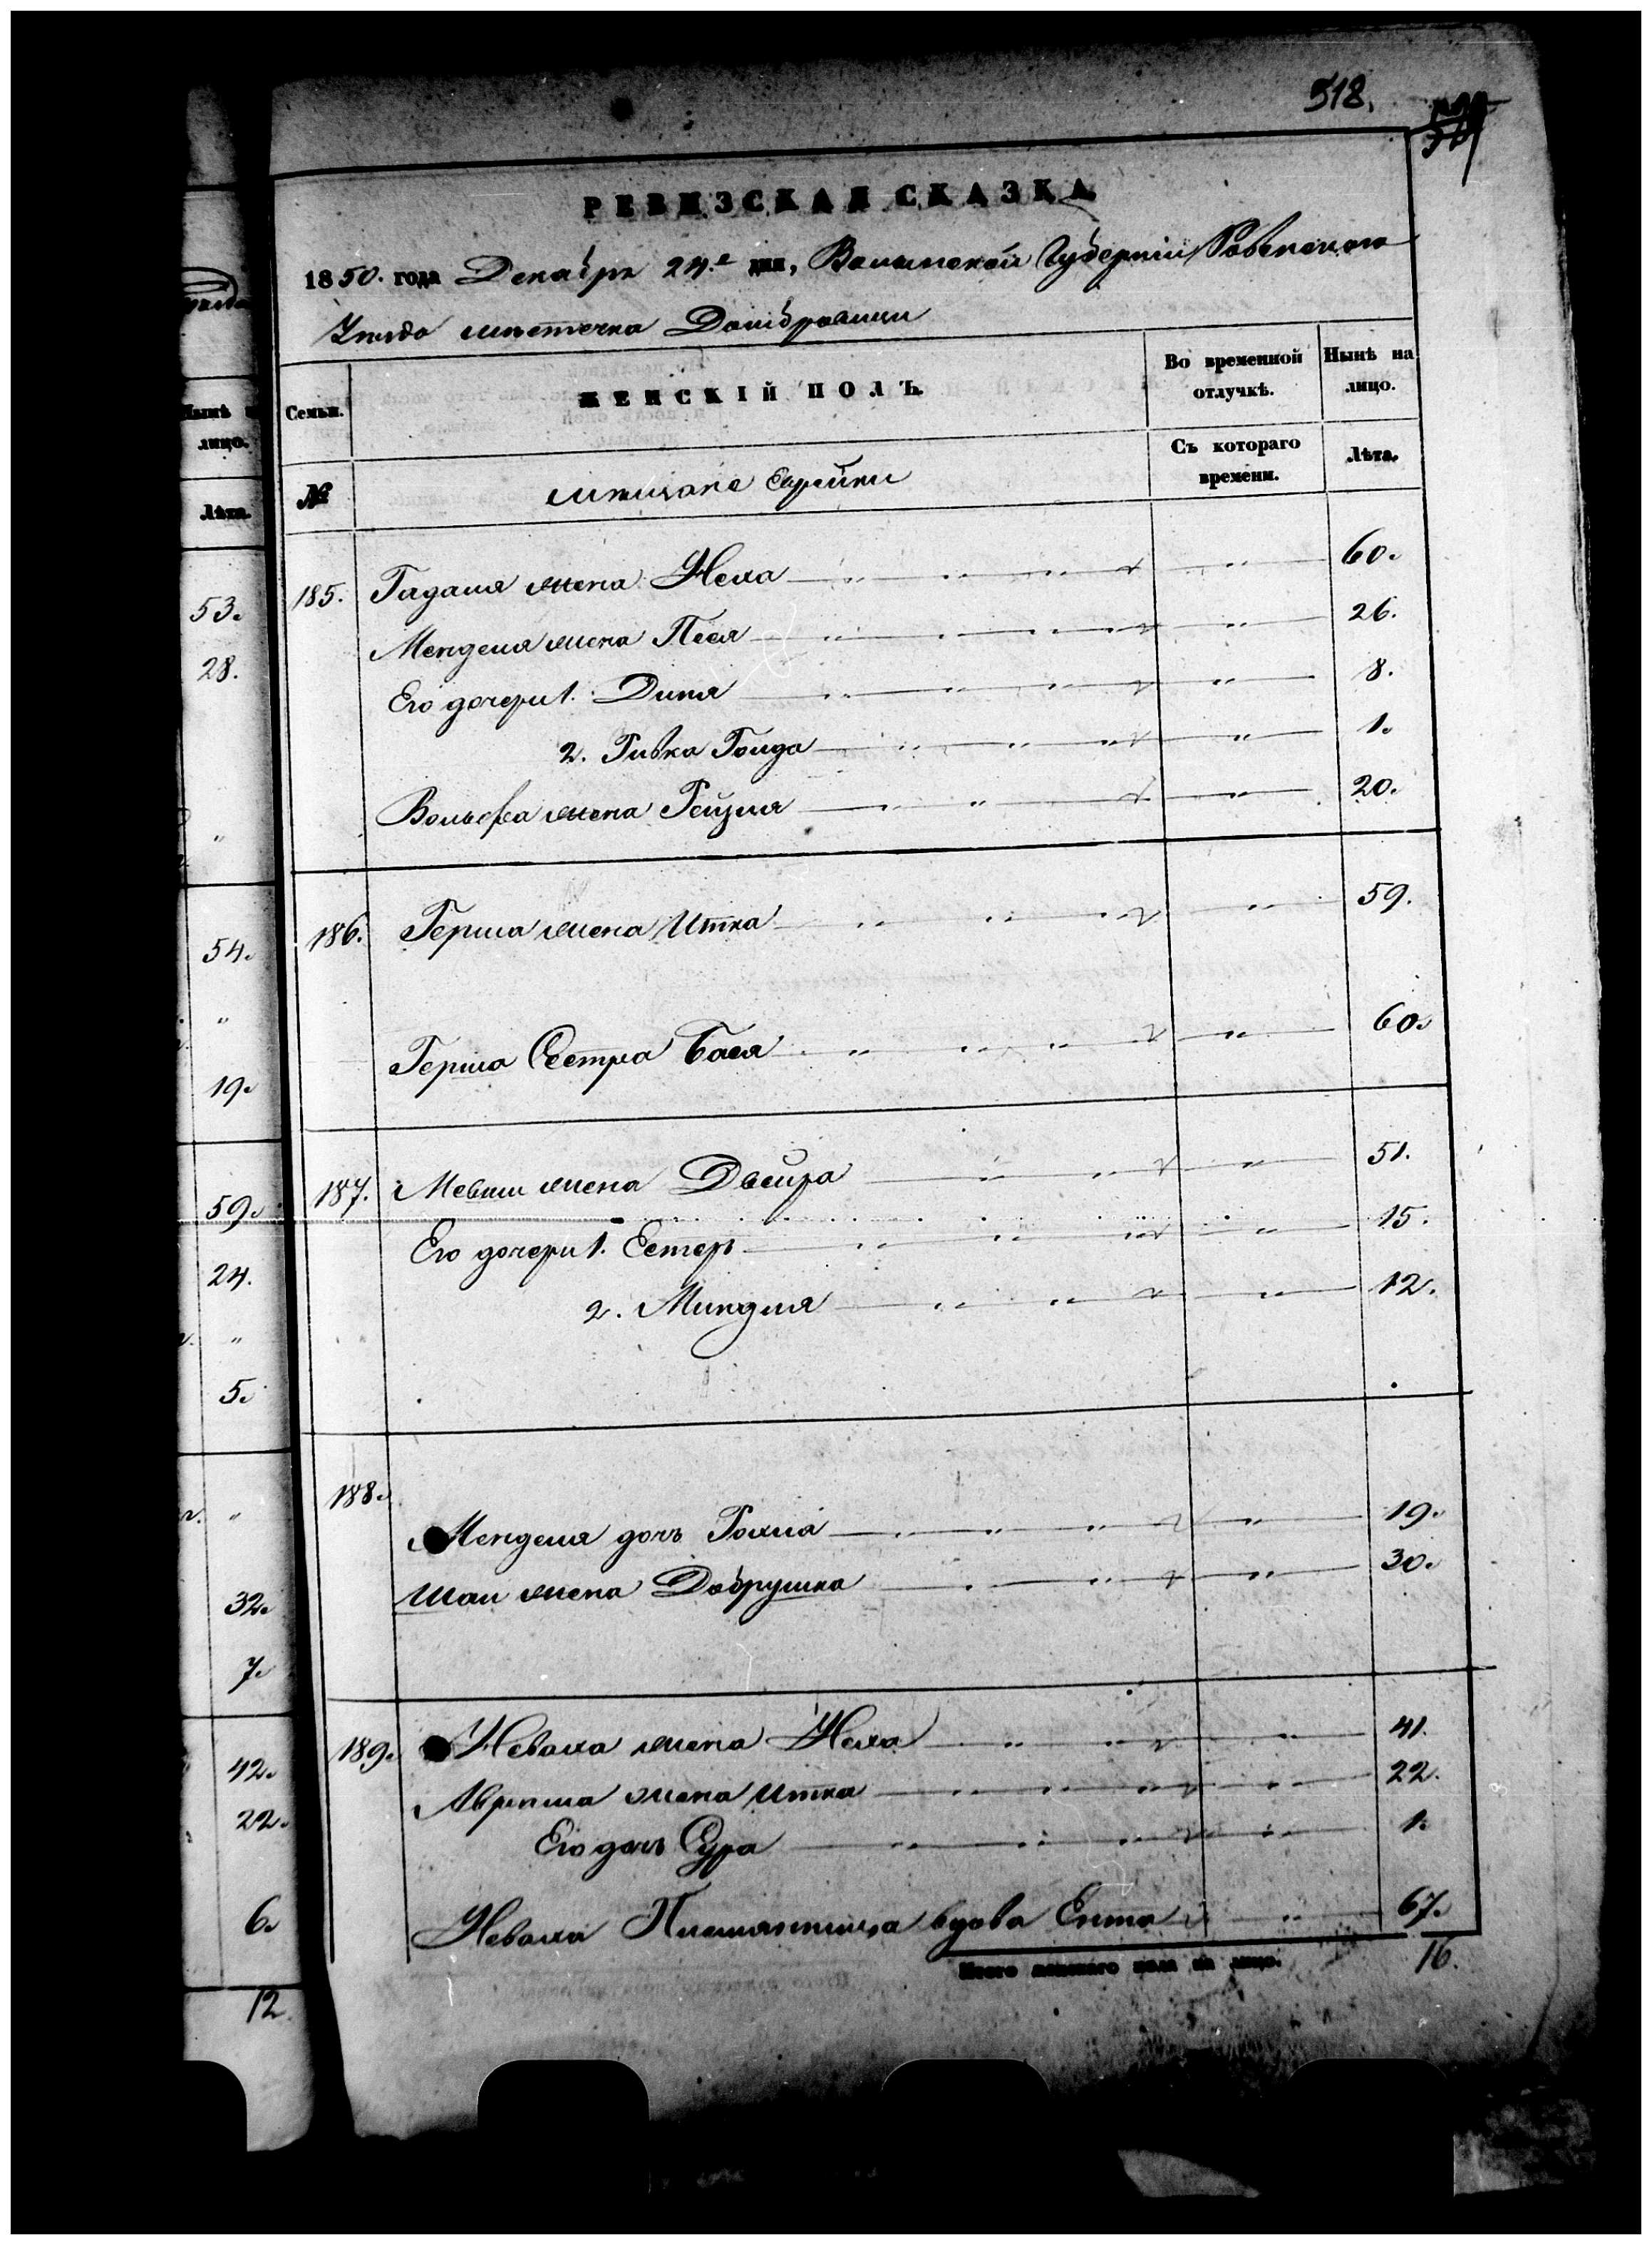 518.
РЕВИЗСКАЯ СКАЗКА
1850. года Декабря 24.е дня, Волынской Губерніи Ровенскаго
Уезда местечка Домбровицы
Семьи.
ЖЕНСКІЙ ПОЛЪ
Во временной отлучкѣ.
Нынѣ на лицо.
№
мещане Еврейки
Съ котораго времени.
Лѣта.
185. Гадаля жена Неха " 60.
Менделя жена Песя " 26.
Его дочери 1. Диня " 8.
2. Ривка Голда " 1.
Вольфа жена Рейзля " 20.
186. Герша жена Итка " 59.
Герша Сестра Бася " 60.
187. жена Двейра " 51.
Его дочери 1. Естеръ " 15.
2. Миндля " 12.
188.
Менделя дочь Рохля " 19.
жена Добрушка " 30.
189. Неваха жена Неха " 41.
жена Итка " 22.
Его дочь Сура " 1.
Неваха вдова Ента " 67.
Итого женскаго пола на лицо. 16.
Нынѣ
лицо.
Лѣта.
53.
28.
"
54.
"
19.
59.
24.
"
5.
"
32.
7.
42.
22.
6.
12